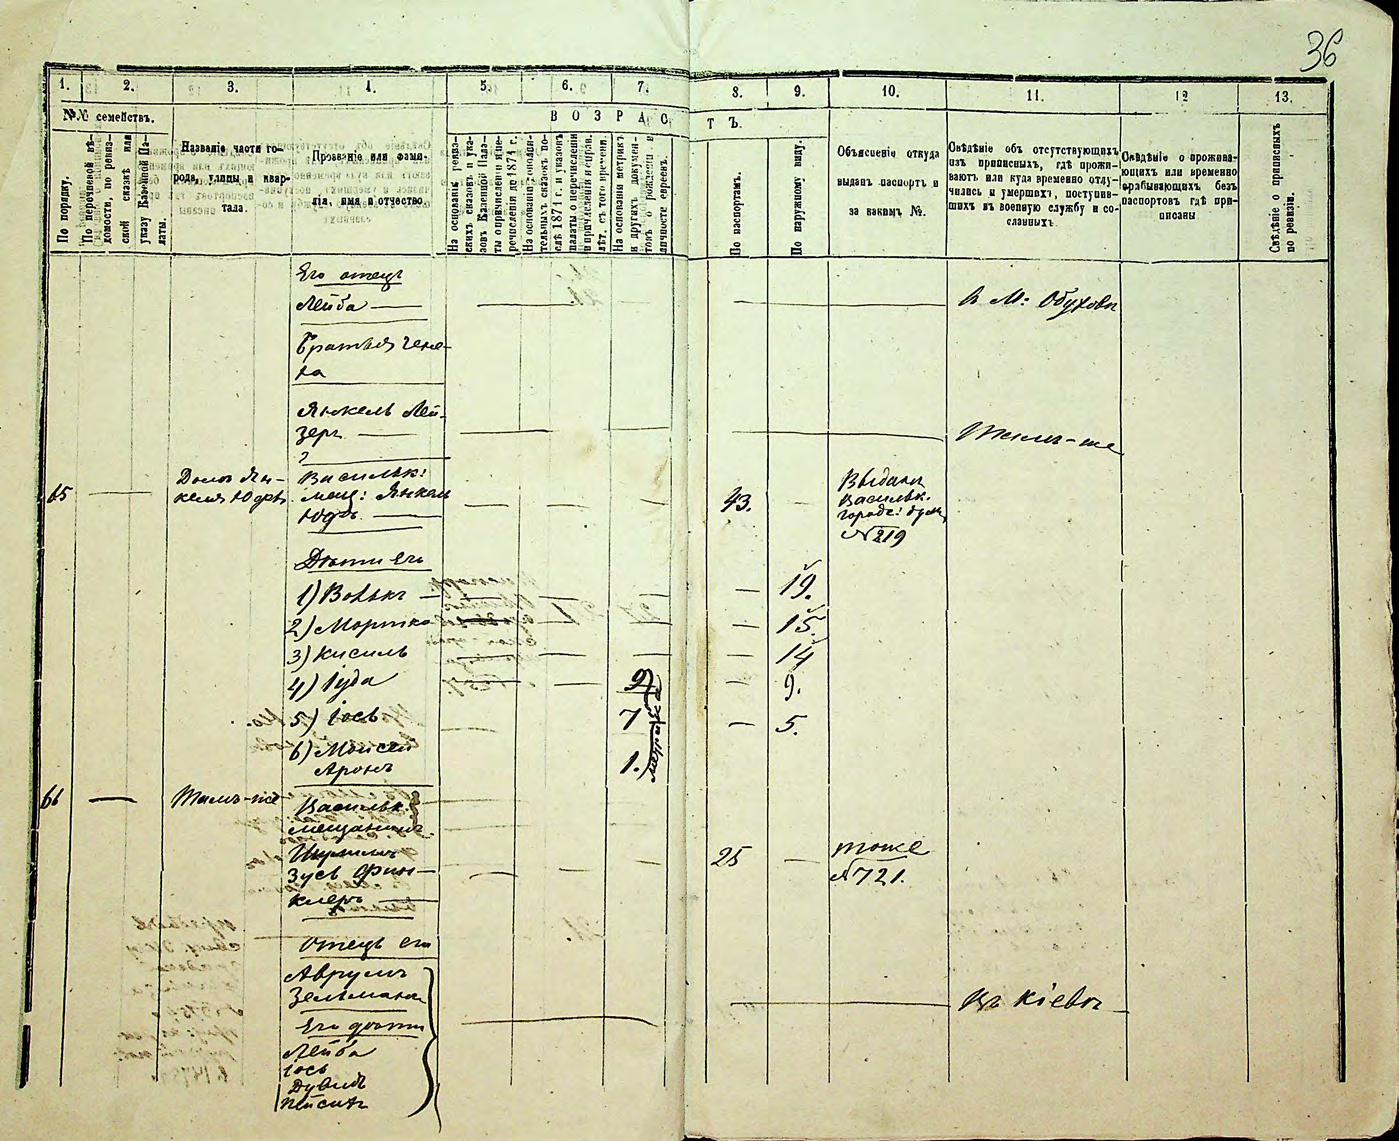 36
1. 2. 3. 4. 5. 6. 7. 8. 9. 10. 11. 12 13.
№№ семействъ.
В О З Р А С Т Ъ.
По порядку.
По перечневой вѣ-
домости, по ревиз-
ской сказкѣ или
указу Казенной Па-
латы.
Названіе части го-
рода, улицы и квар-
тала.
Прозваніе или фами-
лія, имя и отчество.
На основаніи ревиз-
скихъ сказокъ и ука-
зовъ Казенной Пала-
ты о причисленіи и пе-
речисленіи до 1874 г.
На основаніи дополни-
тельныхъ сказокъ по-
слѣ 1874 г. и указовъ
палаты о перечисленіи
и причисленіи и справ.
лѣт. съ того времени.
На основаніи метрикъ
и другихъ докумен-
товъ о рожденіи и
личности евреевъ.
По паспортамъ.
По наружному виду.
Объясненіе откуда
выданъ паспортъ и
за какимъ №.
Свѣдѣніе объ отсутствующихъ
изъ приписныхъ, гдѣ прожи-
ваютъ или куда временно отлу-
чились и умершихъ, поступив-
шихъ въ военную службу и со-
сланныхъ
Свѣдѣніе о прожива-
ющихъ или временно
пребывающихъ безъ
паспортовъ гдѣ при-
писаны
Свѣдѣніе о приписныхъ
по ревизіи.
Его отецъ
Лейба — В М: Обуховъ
Братья
Янкель Лей-
зеръ — Тамъ-же
?
65 — Домъ Ян-
келя Юдъ
Васильк:
мещ: Янкель
Юдъ — 43. —
Выданъ
Васильк.
городс: дум
№ 219
Дѣти его
1) Волькъ — 19.
2) Мортко — 15.
3) Кисиль — 14
4) Іуда — 9 — 9.
5) Іось — 7 — 5.
6) Мойсей
Аронъ 1.
метрика
66 — Тамъ-же
Васильк.
мещанинъ
Шулимъ
Зусь Фин-
клеръ — 25 —
тоже
№ 721.
Отецъ его
Аврумъ
Зельманъ — Въ Кіевѣ
Его дѣти
Лейба
Іось
Дувидъ
Пейсахъ